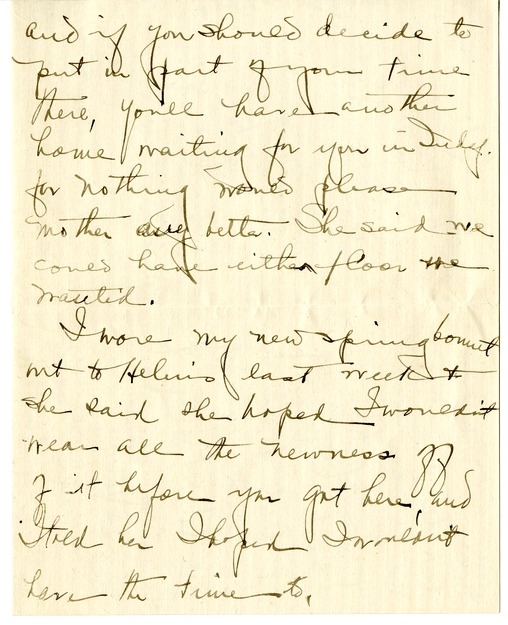 and if you should decide to
put in part of your time
there, you'll have another
home waiting for you in Indpl.
for nothing would please
mother any better. She said we
could have either floor we
wanted.
I wore my new spring bonnet
out to Helen's last week &
she said she hoped I wouldn't
wear all the newness off
of it before you got here, and
I told her I hoped I wouldn't
have the time to.